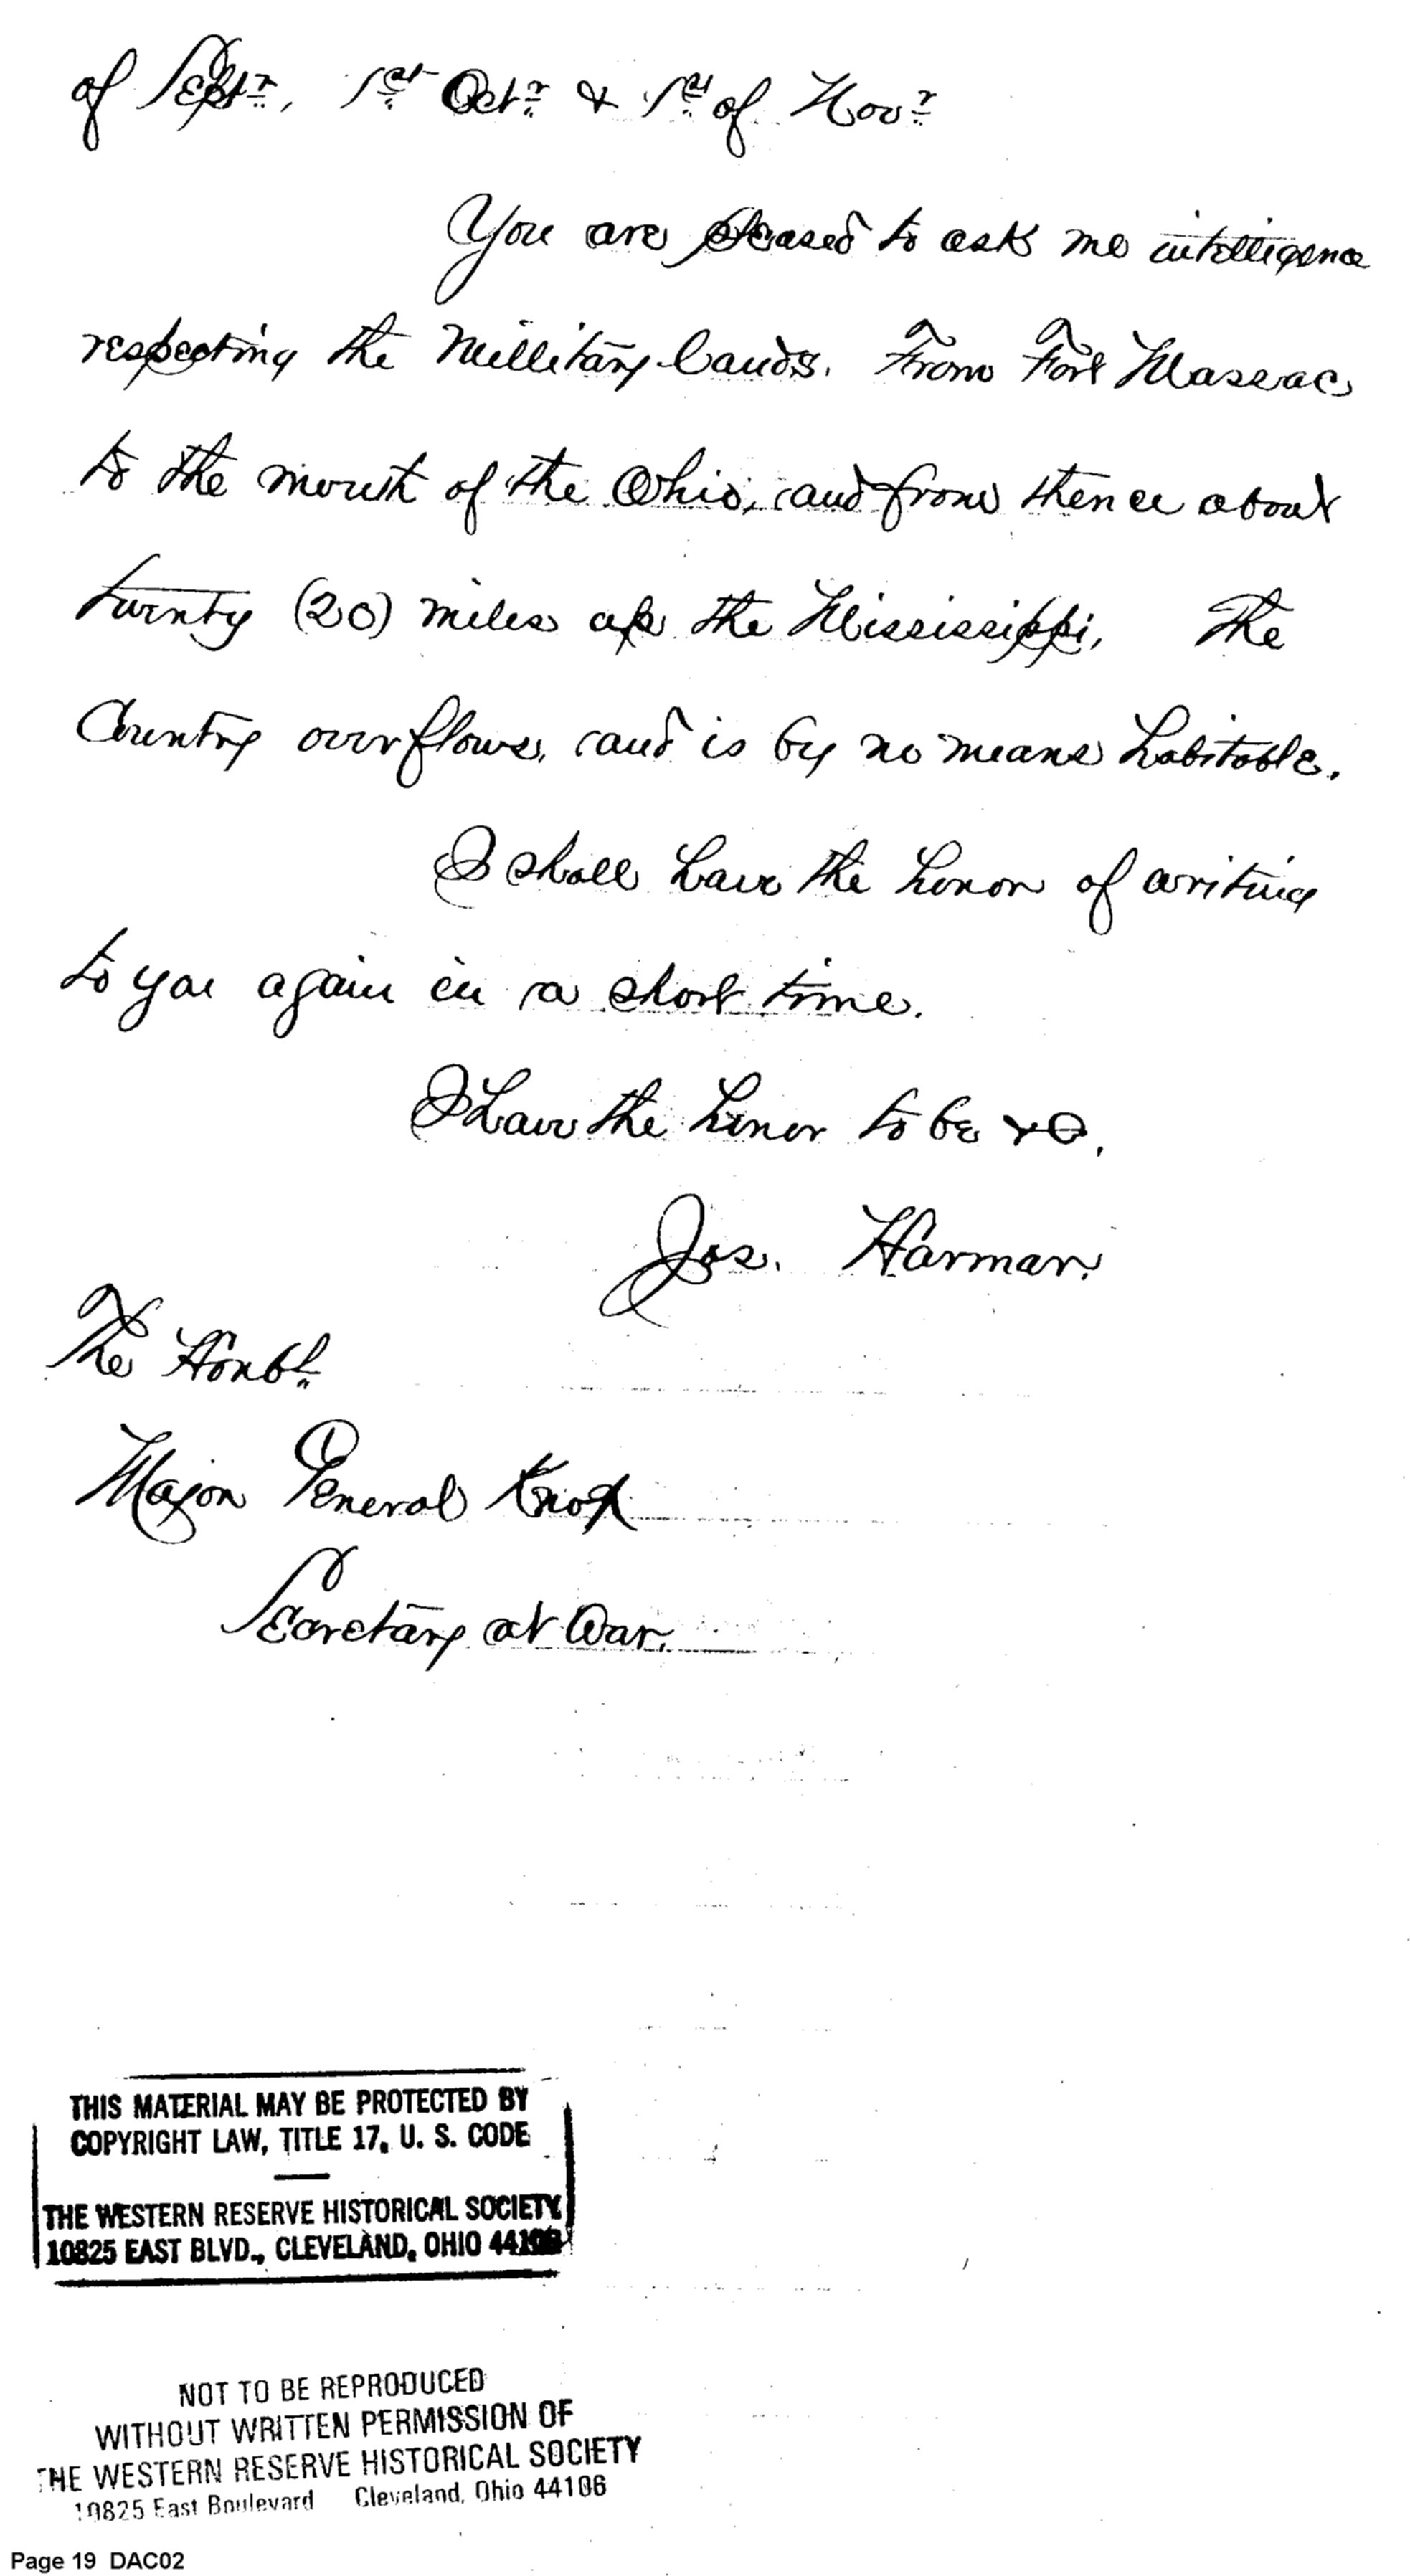 of Septr., 1st Octr & 1st of Novr
You are pleased to ask me intelligence
respecting the Millitary Lands. From Fort Massac
to the mouth of the Ohio, and from thence about
twenty (20) miles up the Mississippi, The
Country overflows, and is by no means habitable.
I shall have the honor of writing
to you again in a short time.
I have the honor to be &c.
Jos. Harmar.
The Honbl.
Major General Knox
Secretary at War.
THIS MATERIAL MAY BE PROTECTED BY
COPYRIGHT LAW, TITLE 17, U. S. CODE
THE WESTERN RESERVE HISTORICAL SOCIETY
10825 EAST BLVD., CLEVELAND, OHIO 44106
NOT TO BE REPRODUCED
WITHOUT WRITTEN PERMISSION OF
THE WESTERN RESERVE HISTORICAL SOCIETY
10825 East Boulevard Cleveland, Ohio 44106
Page 19 DAC02